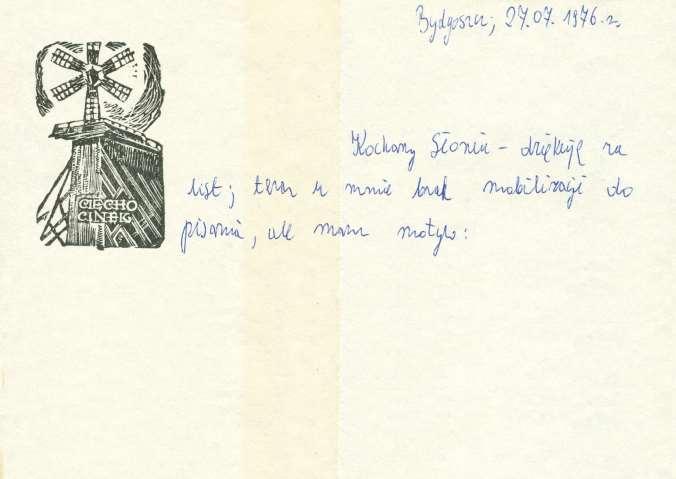 Bydgoszcz, 27.07.1976 r.
CIECHO
CINEK
Kochany Słoniu – dziękuję za
list; teraz u mnie brak mobilizacji do
pisania, ale mam motyw: